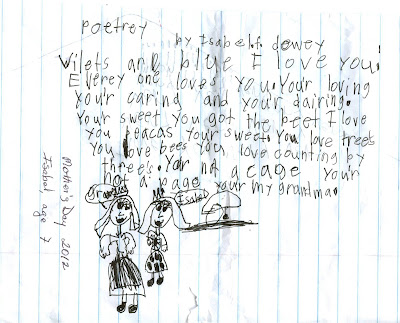 poetrey
by Isabel f. dewey
Vilets are blue I love you.
Everey one loves you. Your loving
your caring and your dairing.
Your sweet you got the beet I love
you beacas your sweet. You love trees
you love bees you love counting by
three's. Yor not a cage your
not a age your my grandma.
grandma
Isabel
Mother's Day 2012
Isabel age 7